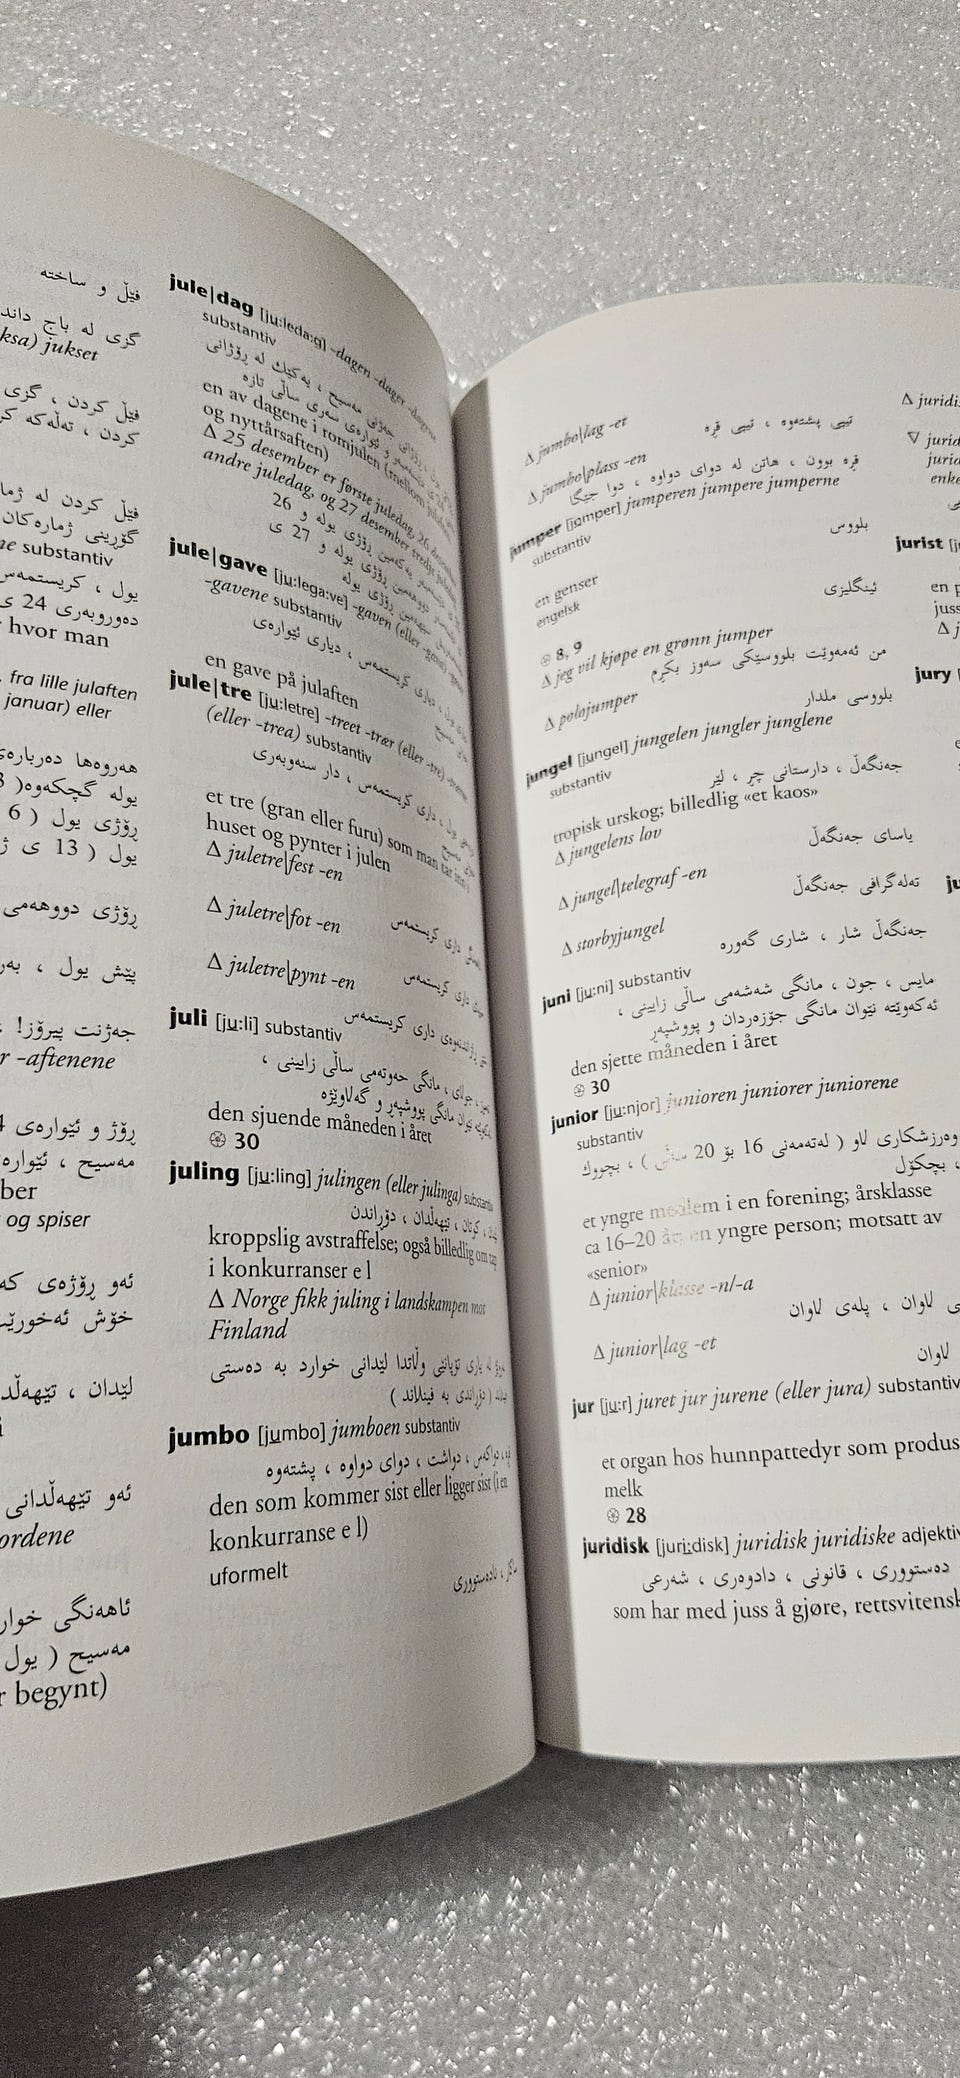 فێڵ و ساختە
گزی لە باج داند
ksa) jukset
فێڵ کردن ، گزی
کردن ، تەڵەکە کر
فێڵ کردن لە ژما
گۆڕینی ژمارەکان
ne substantiv
یول ، کریستمەس
دەوروبەری 24 ی
r hvor man
fra lille julaften
januar) eller
هەروەها دەربارەی
یولە گچکەوە(
ڕۆژی یول ( 6
یول ( 13 ی ژ
ڕۆژی دووهەمی
پێش یول ، بەر
جەژنت پیرۆز! ،
r -aftenene
ڕۆژ و ئێوارەی
مەسیح ، ئێوارە
ber
og spiser
ئەو ڕۆژەی کە
خۆش ئەخورێت
لێدان ، تێهەڵد
ئەو تێهەڵدانی
ordene
ئاهەنگی خوار
مەسیح ( یول
r begynt)
jule|dag [ju:leda:g] -dagen -dager -dagene
substantiv
ڕۆژانی جەژنی مەسیح ، یەکێك لە ڕۆژانی
و ئێوارەی سەری ساڵی تازە
en av dagene i romjulen (mellom julaften
og nyttårsaften)
Δ 25 desember er første juledag, 26 desember
andre juledag, og 27 desember tredje juledag
یەکەمین ڕۆژی یولە و 26
دووهەمین ڕۆژی یولە و 27 ی
سێهەمین ڕۆژی یولە
jule|gave [ju:lega:ve] -gaven (eller -gava) -gaver
-gavene substantiv
دیاری کریستمەس ، دیاری ئێوارەی
en gave på julaften
jule|tre [ju:letre] -treet -trær (eller -tre) -trærne
(eller -trea) substantiv
یول ، داری کریستمەس ، دار سنەوبەری
et tre (gran eller furu) som man tar inn i
huset og pynter i julen
Δ juletre|fest -en
داری کریستمەس
Δ juletre|fot -en
داری کریستمەس
Δ juletre|pynt -en
ڕازاندنەوەی داری کریستمەس
juli [ju:li] substantiv
جولای ، مانگی حەوتەمی ساڵی زایینی ،
نێوان مانگی پووشپەڕ و گەلاوێژە
den sjuende måneden i året
֍ 30
juling [ju:ling] julingen (eller julinga) substantiv
کوتان ، تێهەڵدان ، دۆڕاندن
kroppslig avstraffelse; også billedlig om tap
i konkurranser e l
Δ Norge fikk juling i landskampen mot
Finland
لە یاری تۆپانێی وڵاتدا لێدانی خوارد بە دەستی
( دۆڕاندی بە فینلاند )
jumbo [jumbo] jumboen substantiv
دواکەس ، دواشت ، دوای دواوە ، پشتەوە
den som kommer sist eller ligger sist (i en
konkurranse e l)
uformelt
نادەستووری
Δ jumbo|lag -et
تیپی پشتەوە ، تیپی قڕە
Δ jumbo|plass -en
قڕە بوون ، هاتن لە دوای دواوە ، دوا جێگا
jumper [jomper] jumperen jumpere jumperne
substantiv
بلووس
en genser
engelsk
ئینگلیزی
֍ 8, 9
Δ jeg vil kjøpe en grønn jumper
من ئەمەوێت بلووسێکی سەوز بکڕم
Δ polojumper
بلووسی ملدار
jungel [jungel] jungelen jungler junglene
substantiv
جەنگەڵ ، دارستانی چڕ ، لێڕ
tropisk urskog; billedlig «et kaos»
Δ jungelens lov
یاسای جەنگەڵ
Δ jungel|telegraf -en
تەلەگرافی جەنگەڵ
Δ storbyjungel
جەنگەڵ شار ، شاری گەورە
juni [ju:ni] substantiv
مایس ، جون ، مانگی شەشەمی ساڵی زایینی ،
ئەکەوێتە نێوان مانگی جۆزەردان و پووشپەڕ
den sjette måneden i året
֍ 30
junior [ju:njor] junioren juniorer juniorene
substantiv
وەرزشکاری لاو ( لەتەمەنی 16 بۆ 20 ساڵی ) ، بچووك
، بچکۆل
et yngre medlem i en forening; årsklasse
ca 16–20 år; en yngre person; motsatt av
«senior»
Δ junior|klasse -n/-a
ی لاوان ، پلەی لاوان
Δ junior|lag -et
لاوان
jur [ju:r] juret jur jurene (eller jura) substantiv
et organ hos hunnpattedyr som produs
melk
֍ 28
juridisk [juri:disk] juridisk juridiske adjektiv
دەستووری ، قانونی ، دادوەری ، شەرعی
som har med juss å gjøre, rettsvitensk
Δ juridi
∇ jurid
jurid
enke
jurist [j
en p
juss
Δ j
jury [
ju